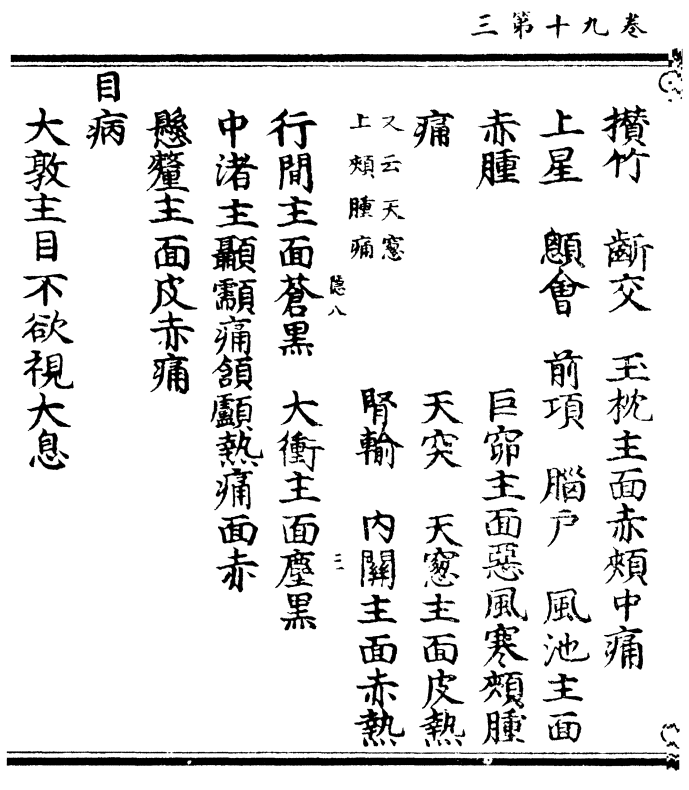 卷九十第三
攢竹　齗交　玉枕主面赤頰中痛
上星　顖會　前項　腦户　風池主面
赤腫　巨窌主面惡風寒頰腫
痛　天突　天窻主面皮熱
又云天窻
上頰腫痛
腎輸　内關主面赤熱
隠八
三一
行間主面蒼黒　大衝主面塵黒
中渚主顳顬痛頷顱熱痛面赤
懸釐主面皮赤痛
目病
大敦主目不欲視大息